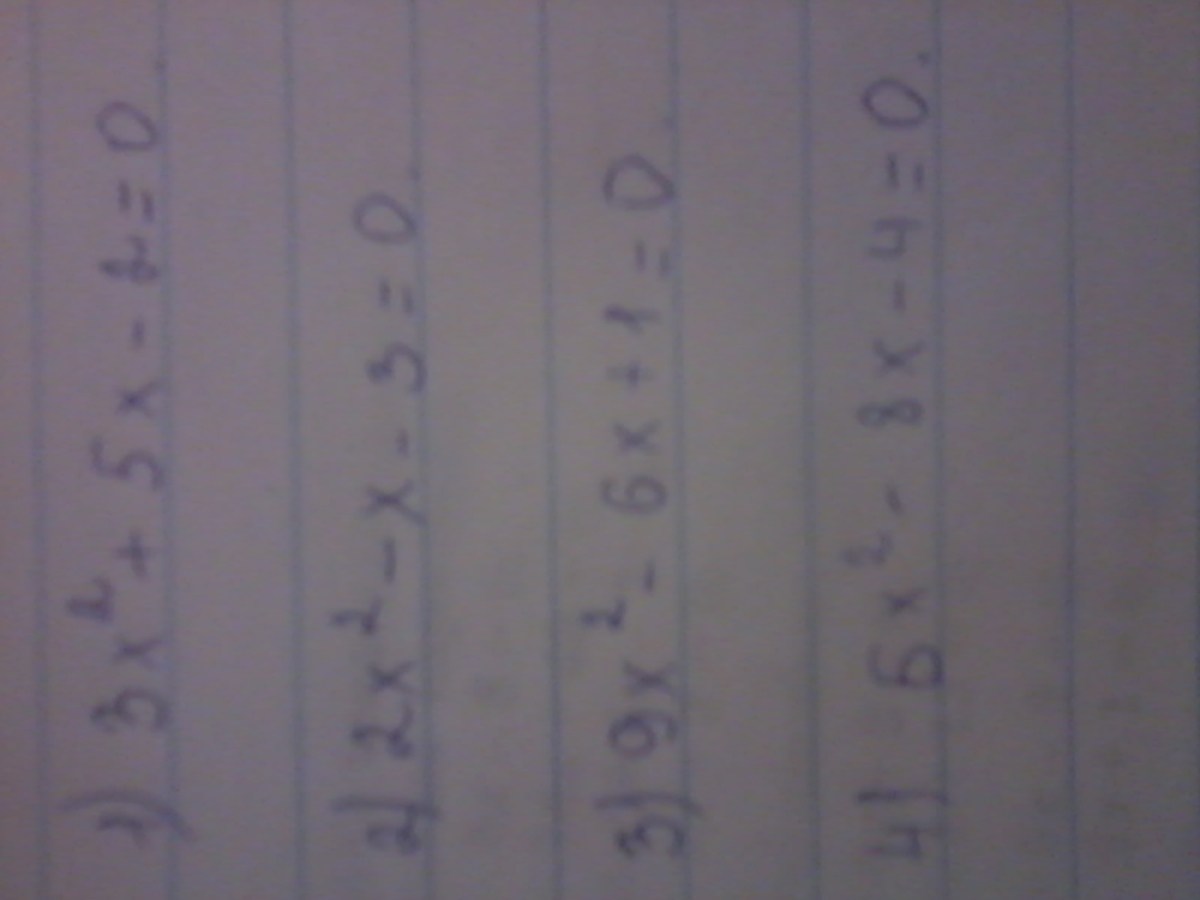 1) 3x² + 5x - 2 = 0
2) 2x² - x - 3 = 0.
3) 9x² - 6x + 1 = 0.
4) 5x² - 8x - 4 = 0.